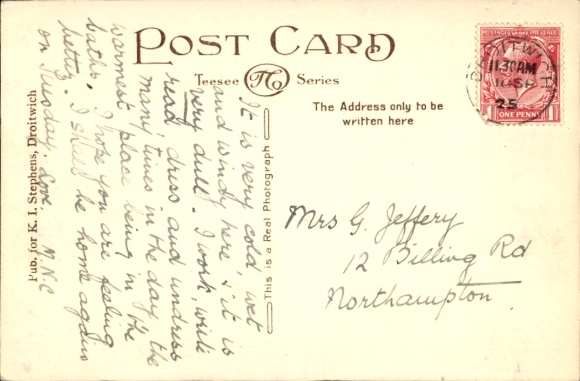 POST CARD
Teesee TC Series
The Address only to be
written here
This is a Real Photograph
Pub. for K. I. Stephens, Droitwich
It is very cold, wet
and windy here, & it is
very dull. I work, write
read, dress and undress
many times in the day, the
warmest place being in the
baths. I hope you are feeling
better. I shall be home again
on Tuesday. Love. M.N.C
Mrs G. Jeffery
12 Billing Rd
Northampton.
DROITWICH
11.30AM
10 SP
25
POSTAGE REVENUE
ONE PENNY